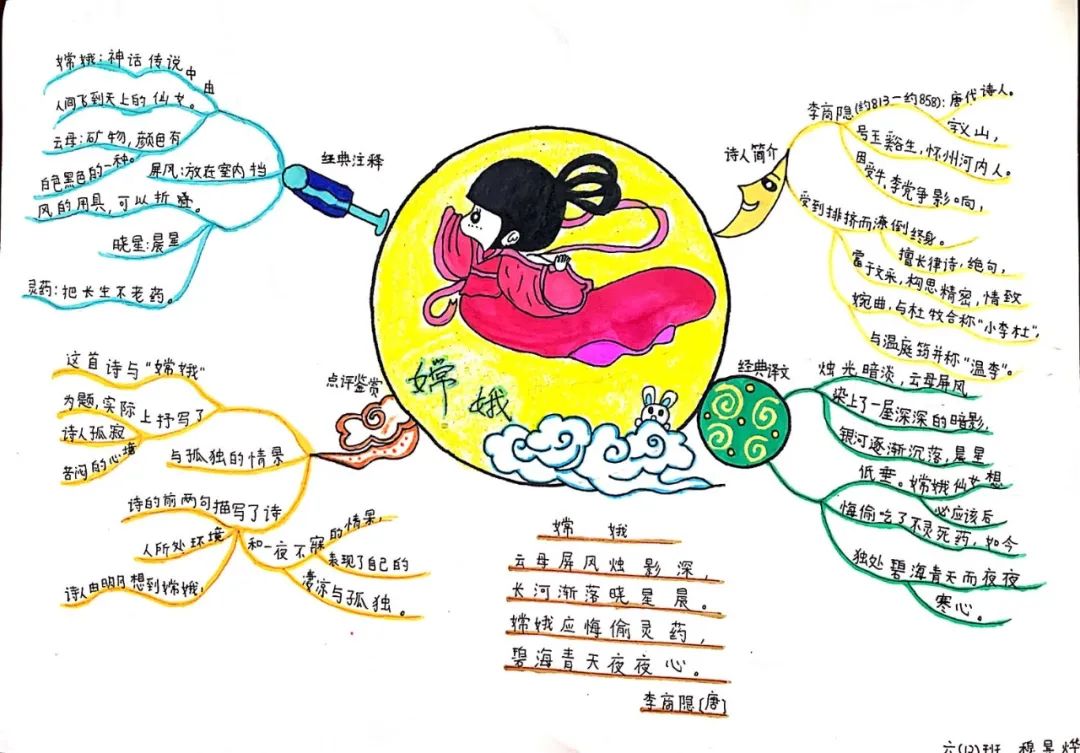 嫦娥:神话传说中由
人间飞到天上的仙女。
云母:矿物,颜色有
白色黑色的一种。
屏风:放在室内挡
风的用具,可以折叠。
晓星:晨星
灵药:把长生不老药。
经典注释
诗人简介
李商隐(约813一约858):唐代诗人。
字义山,
号玉谿生,怀州河内人。
因
受牛、李党争影响,
受到排挤而潦倒终身。
擅长律诗,绝句,
富于文采,构思精密,情致
婉曲,与杜牧合称"小李杜",
与温庭筠并称"温李"。
这首诗与"嫦娥"
为题,实际上抒写了
诗人孤寂
苦闷的心境
与孤独的情景
诗的前两句描写了诗
人所处环境
和一夜不寐的情景,
表现了自己的
凄凉与孤独。
诗人由明月想到嫦娥,
点评鉴赏
嫦娥
经典译文
烛光暗淡,云母屏风
染上了一层深深的暗影,
银河逐渐沉落,晨星
低垂。嫦娥仙女想
必应该后
悔偷吃了不灵死药,如今
独处碧海青天而夜夜
寒心。
嫦娥
云母屏风烛影深,
长河渐落晓星晨。
嫦娥应悔偷灵药,
碧海青天夜夜心。
李商隐[唐]
六(12)班